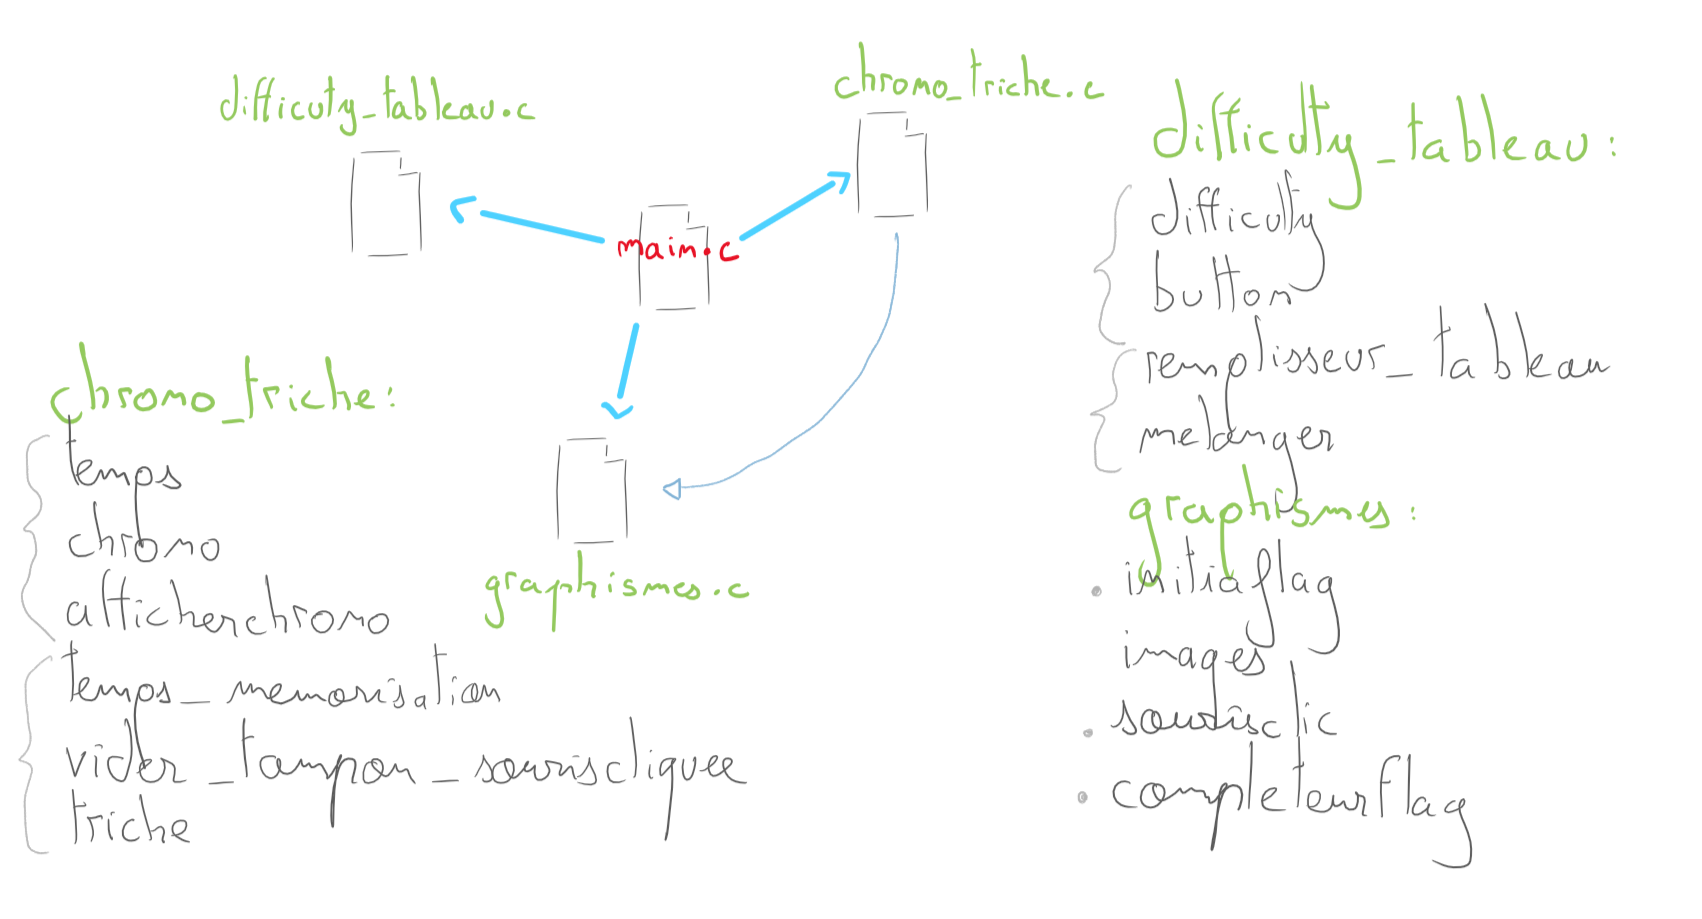 difficuty_tableau.c
chromo_triche.c
main.c
graphismes.c
chromo_triche:
temps
chromo
afficherchromo
temps_memorisation
vider_tampon_souriscliquee
triche
difficulty_tableau:
difficulty
button
remplisseur_tableau
melanger
graphismes:
. initiaflag
images
. sourisclic
. completeurflag